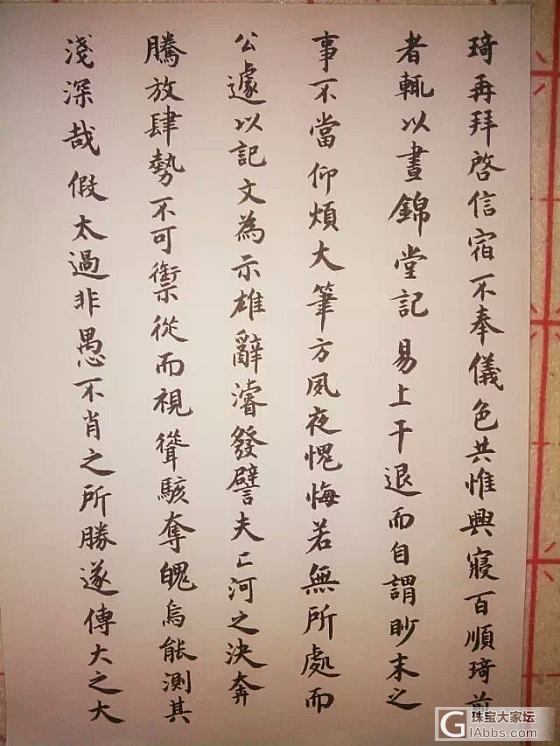 琦再拜啓信宿不奉儀色共惟興寢百順琦前
者輒以晝錦堂記易上干退而自謂眇末之
事不當仰煩大筆方夙夜愧悔若無所處而
公遽以記文為示雄辭濬發譬夫江河之決奔
騰放肆勢不可禦從而視聳駭奪魄烏能測其
淺深哉假太過非愚不肖之所勝遂傳大之大
珠宝大家坛
GIAbbs.com